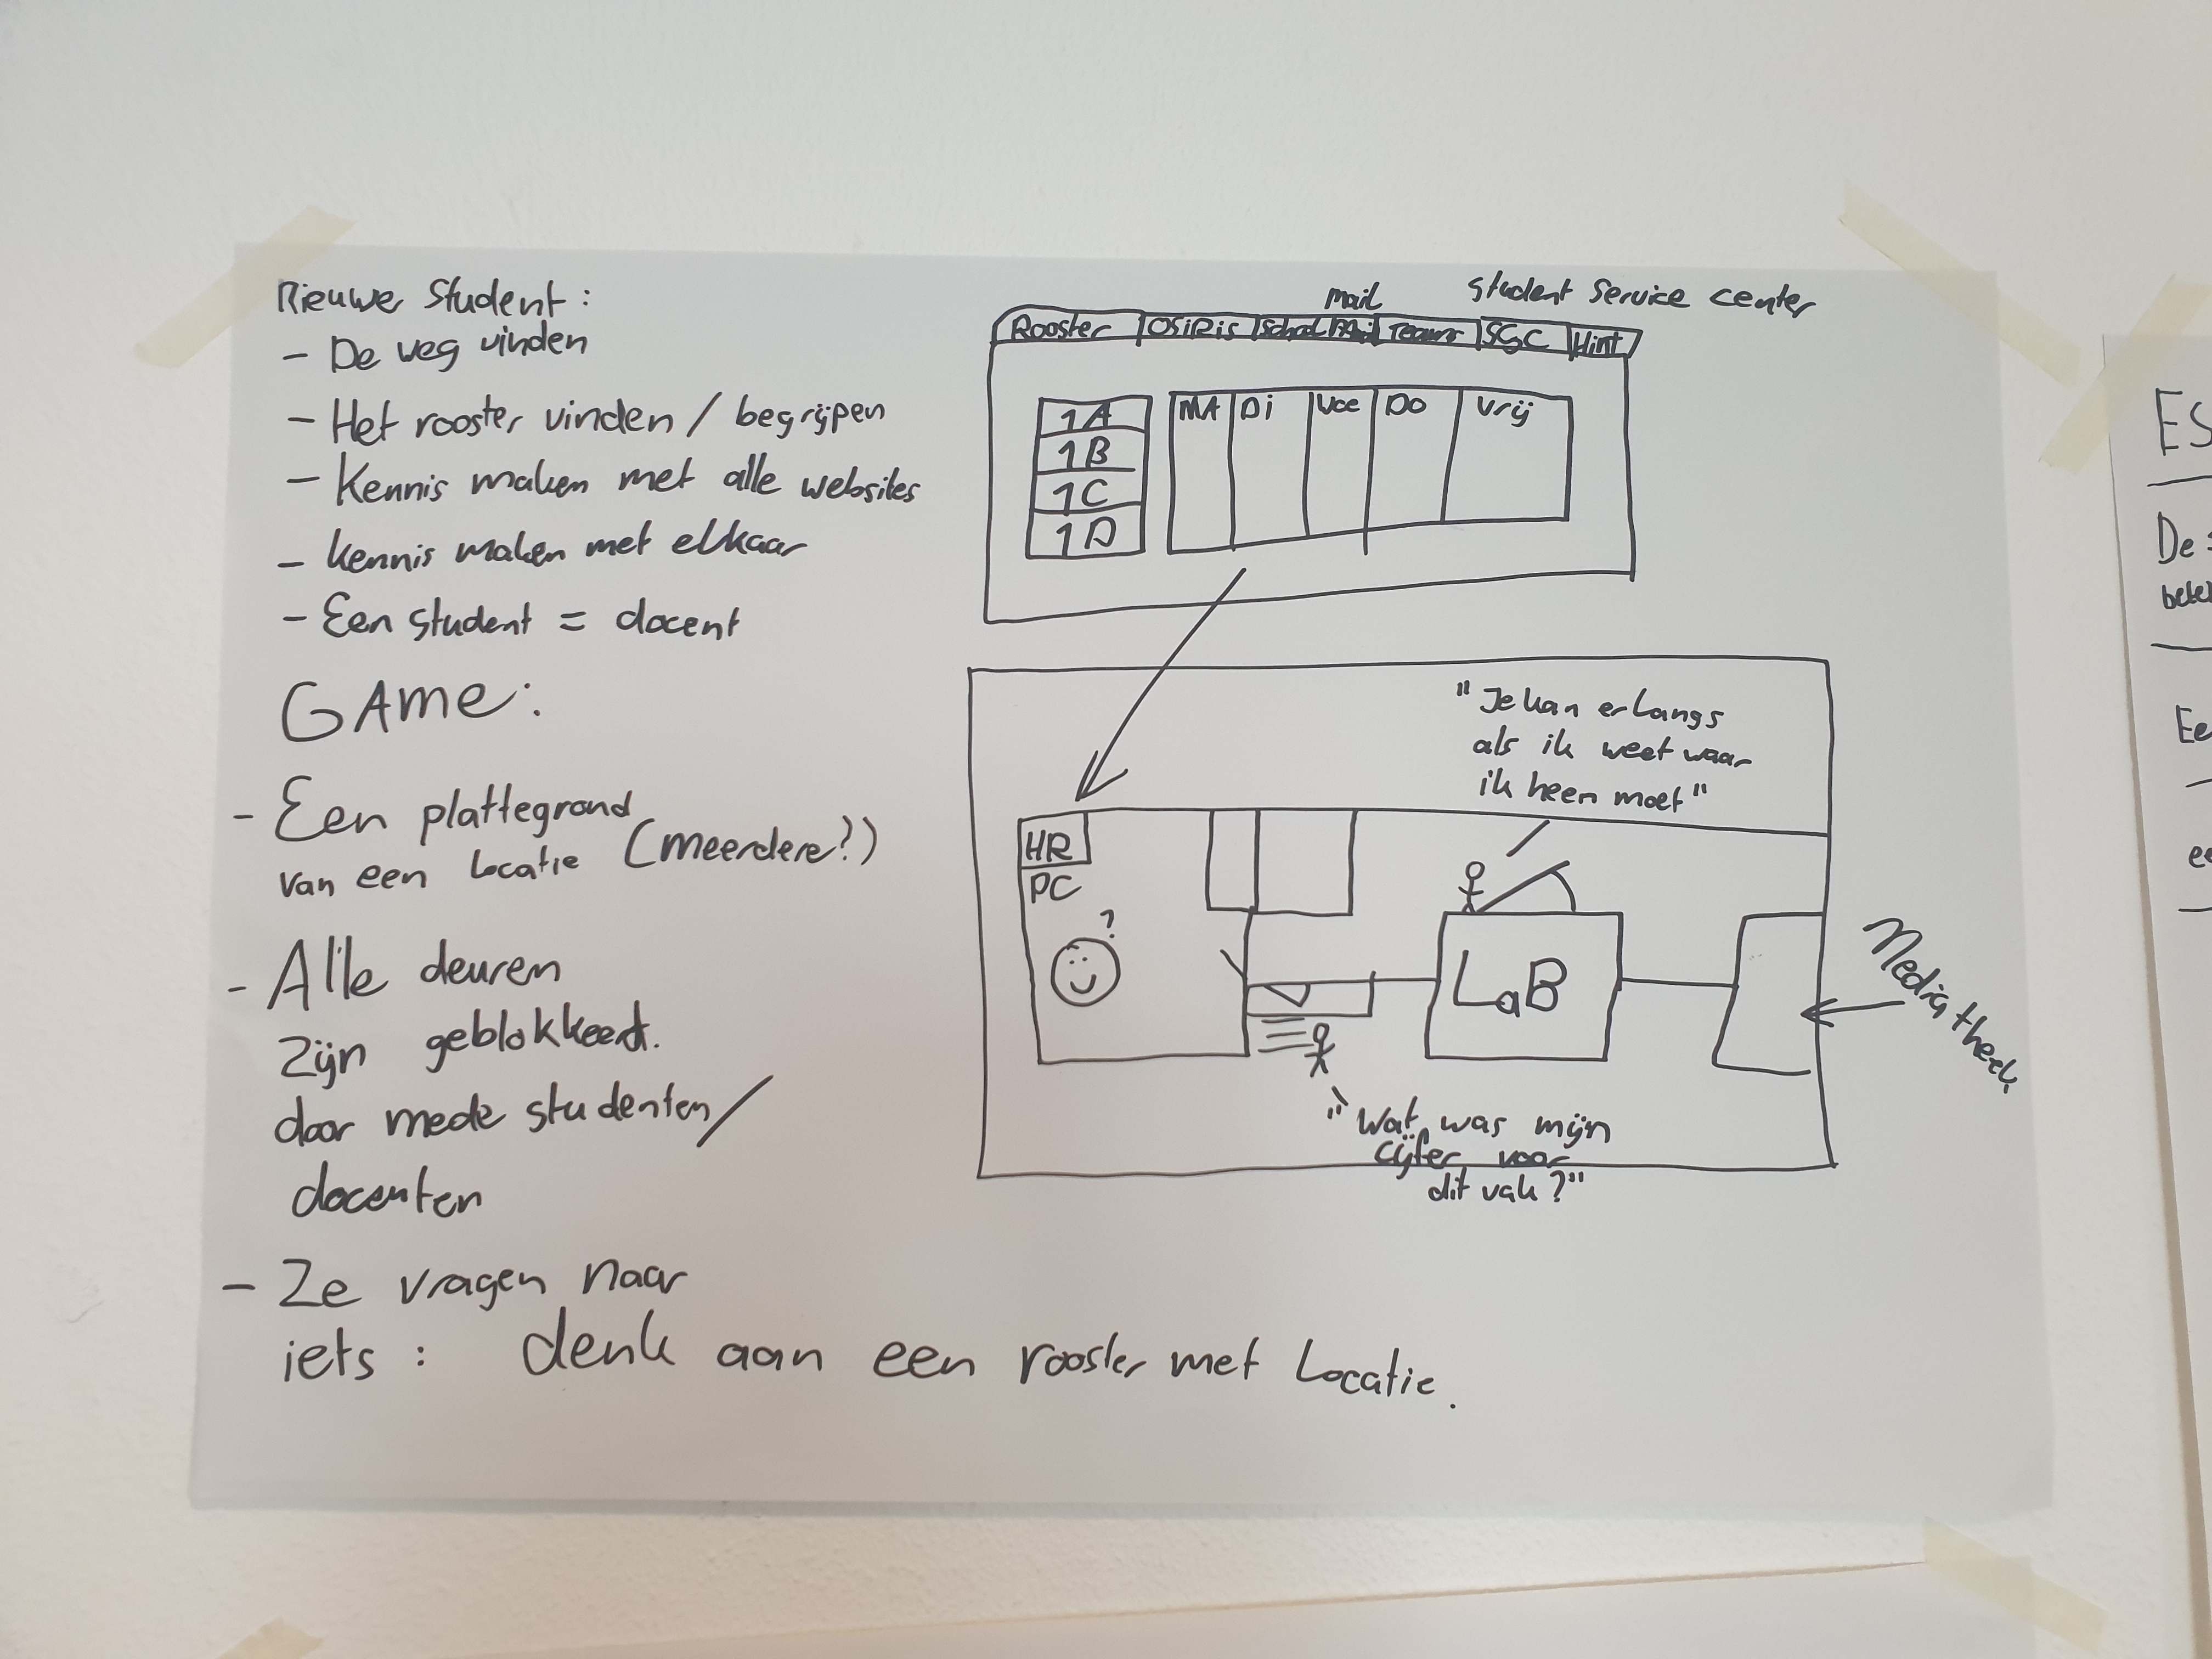 Nieuwe Student:
- De weg vinden
- Het rooster vinden / begrijpen
- Kennis maken met alle websites
- kennis maken met elkaar
- Een student = docent
GAme:
- Een plattegrond
van een Locatie (meerdere?)
- Alle deuren
zijn geblokkeerd.
door mede studenten/
docenten
- Ze vragen naar
iets: denk aan een rooster met Locatie.
mail
Student Service center
Rooster OSiRis School Teams SSC Hint
1A
1B
1C
1D
MA Di Woe Do Vrij
"Je kan er langs
als ik weet waar
ik heen moet"
HR
PC
?
LaB
Mediatheek
"Wat was mijn
cijfer voor
dit vak?"
ES
De
Ee